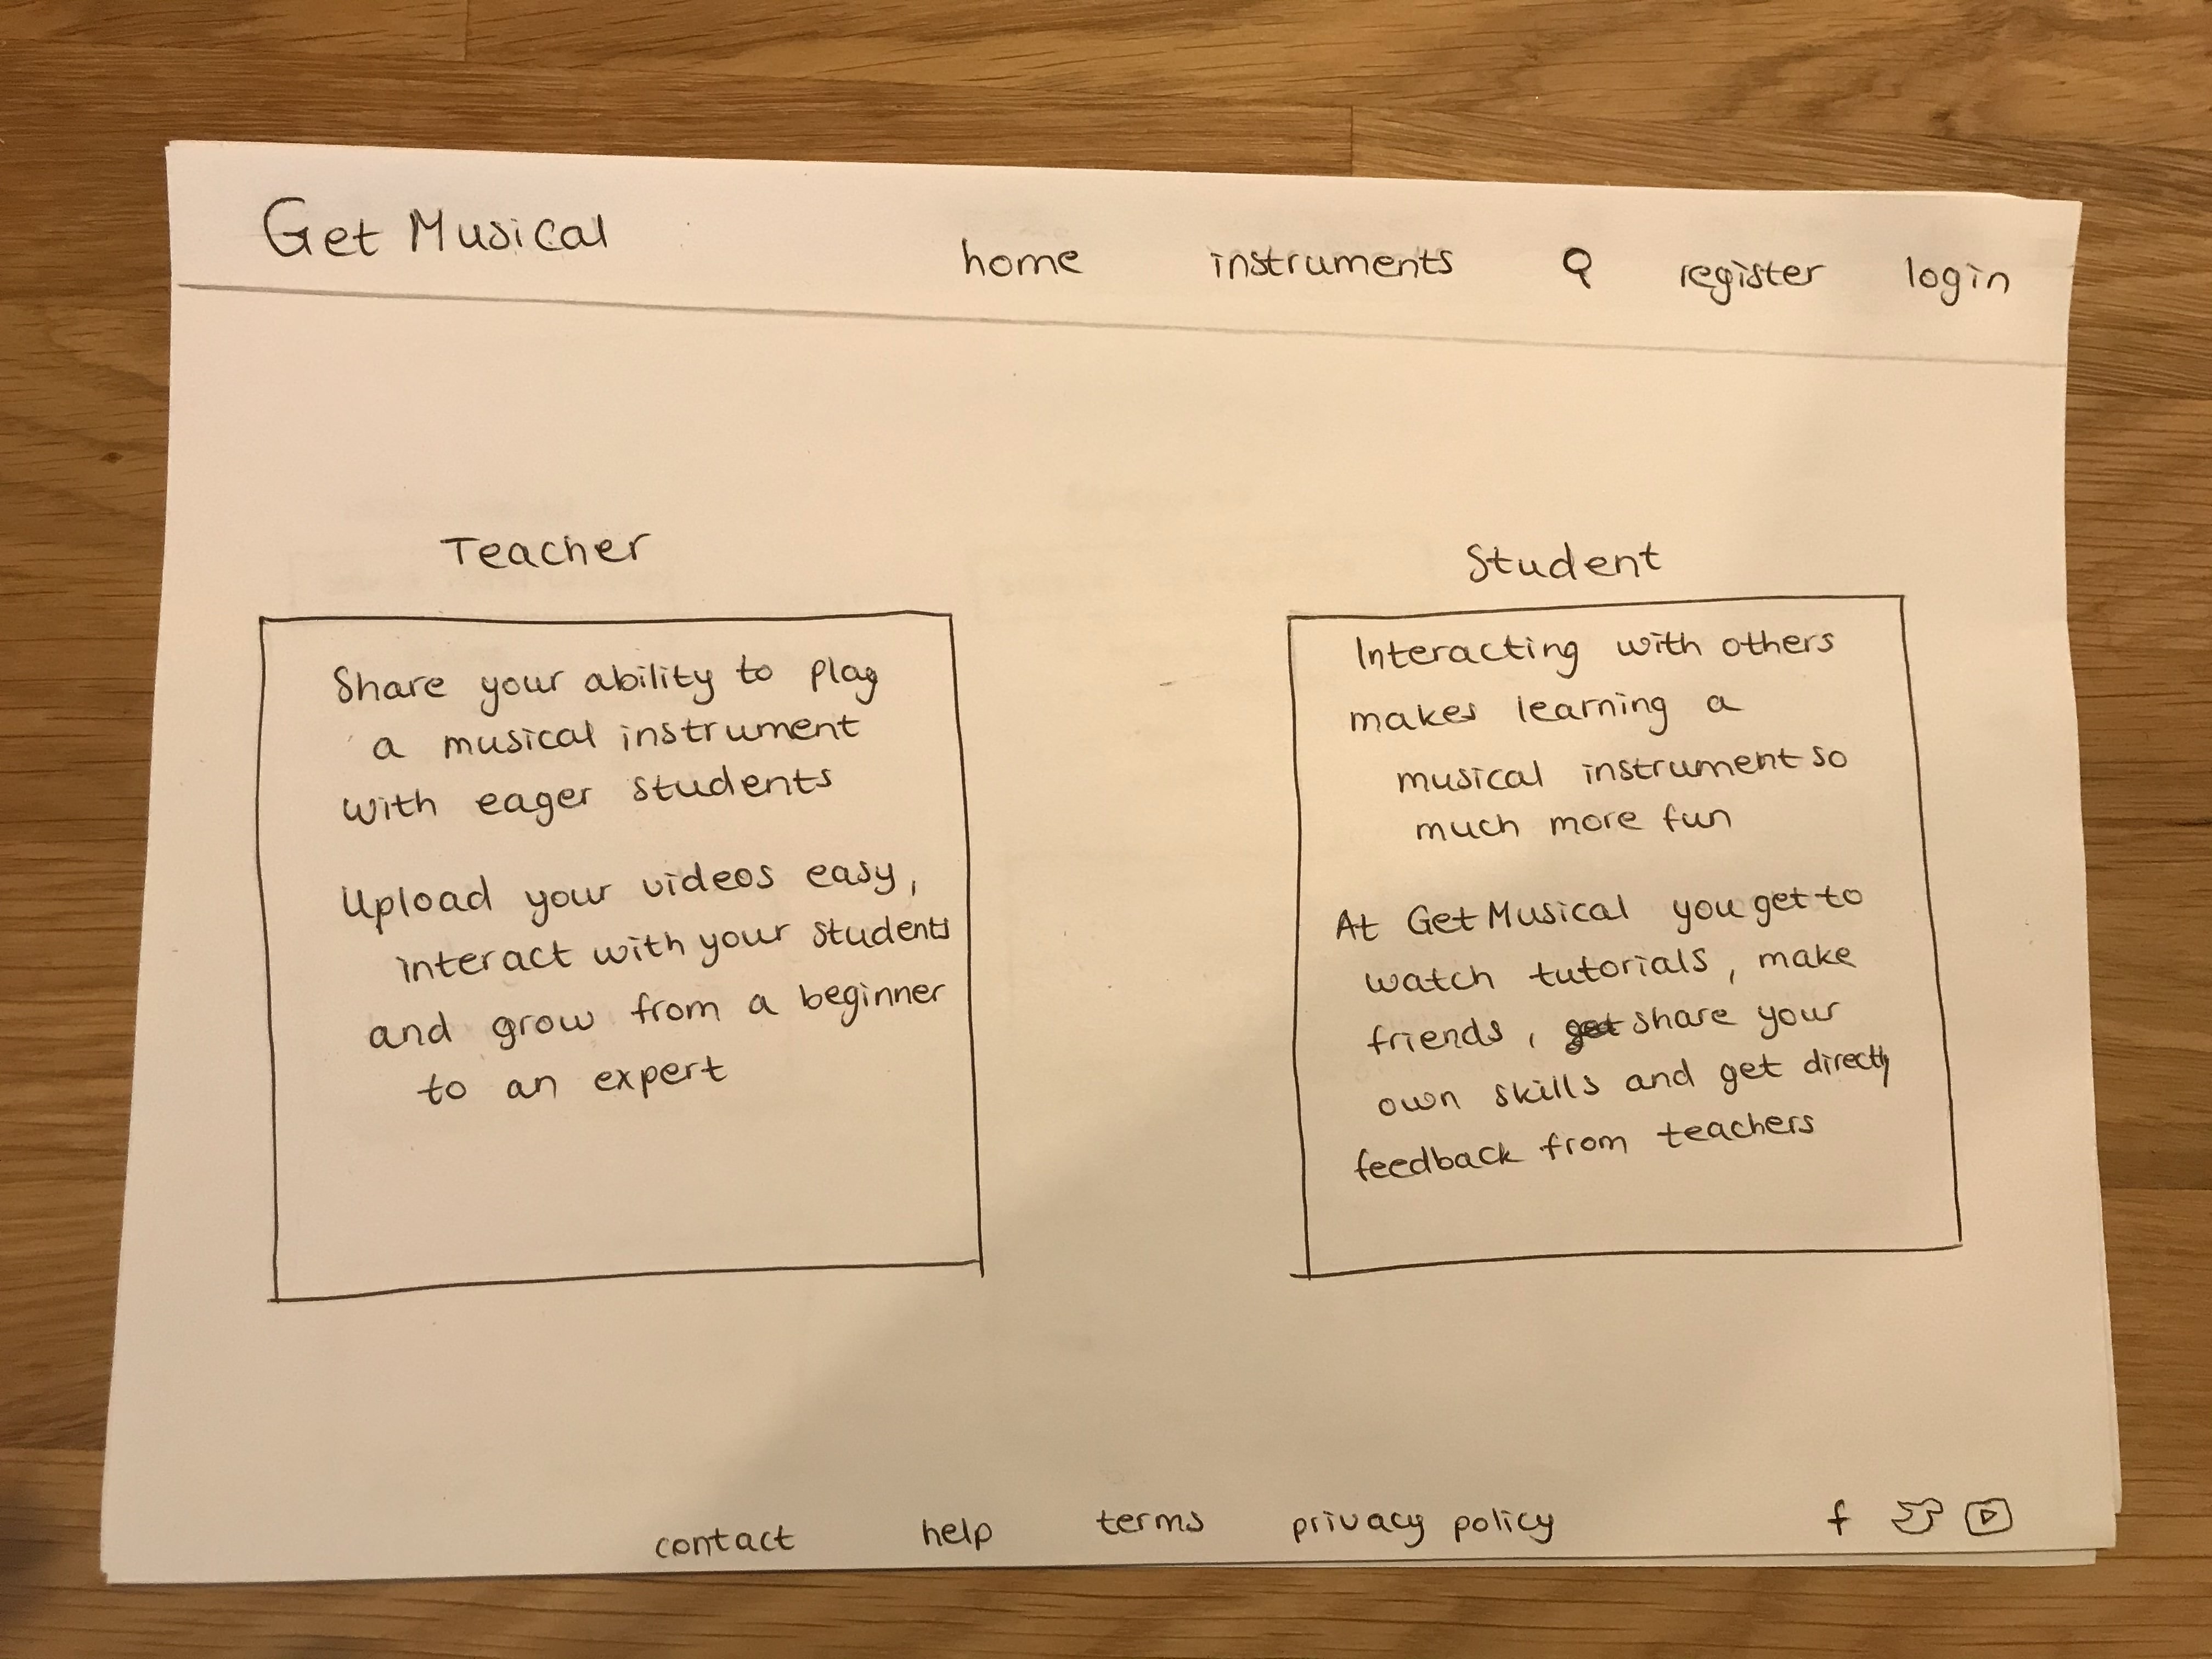 Get Musical
home instruments register login
Teacher
Share your ability to play
a musical instrument
with eager students
Upload your videos easy,
interact with your students
and grow from a beginner
to an expert
Student
Interacting with others
makes learning a
musical instrument so
much more fun
At Get Musical you get to
watch tutorials, make
friends, share your
own skills and get directly
feedback from teachers
contact help terms privacy policy f